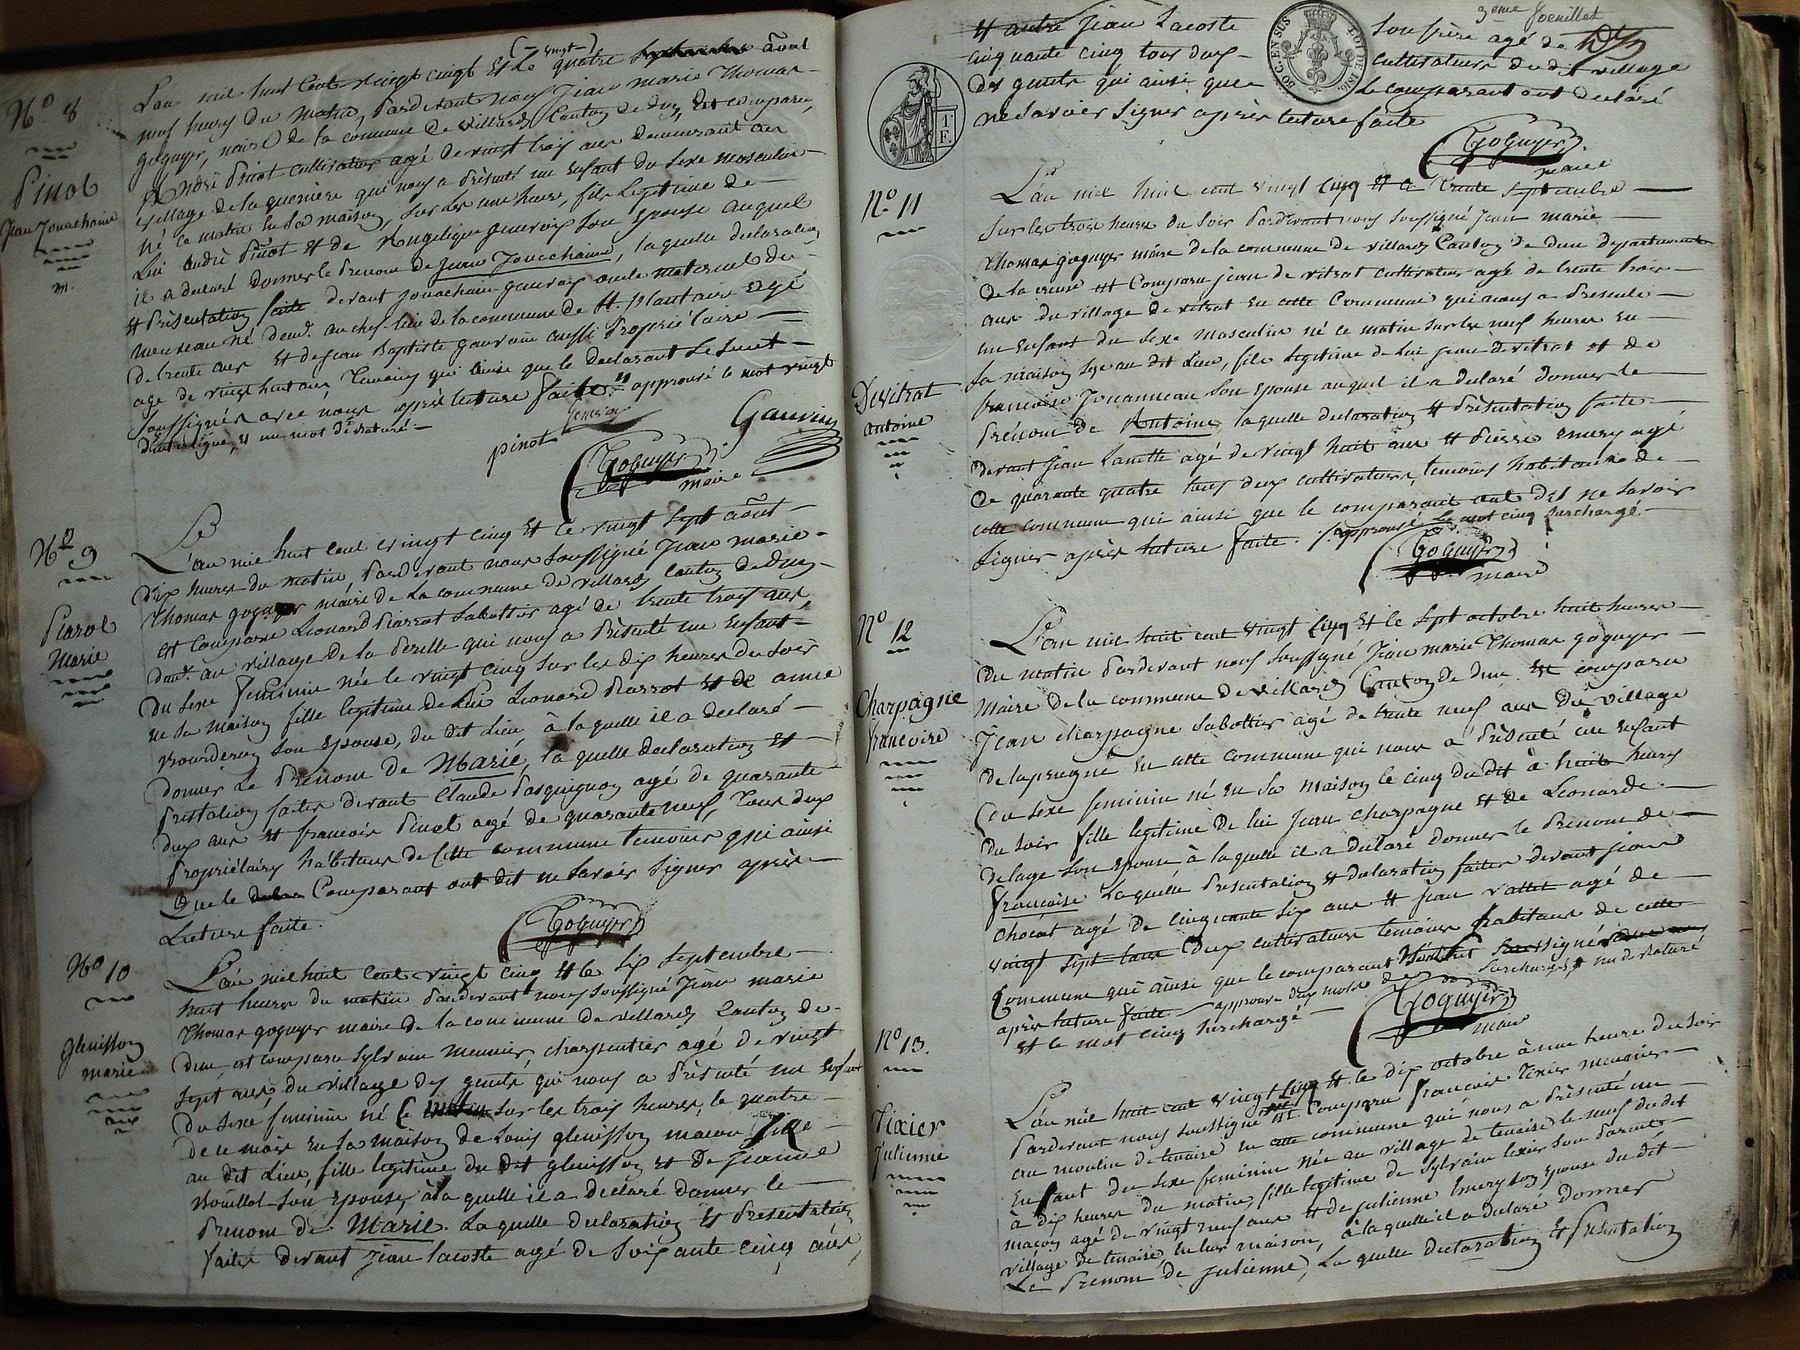 N.° 8
Pinot
Jean Jouachaim
m.
(- vingt -)
L'an mil huit Cent vingt cinq et Le quatre septembre août
neuf heures du matin, Pardevant nous Jean marie Thomas
goguyer, maire de la commune de villard, Canton de dun, Est comparu
André Pinot cultivateur agé de vingt trois ans demeurant au
village de la querriere qui nous a Présenté un Enfant du Sexe masculin
né ce matin en sa maison, sur les une heure, fils Legitime de
Lui André Pinot et de Angelique gauvoix son Epouse auquel
il a déclaré donner le Prenom de Jean Jouachaim, la quelle declaration
et Présentation faite devant jouachain gauvoix oncle maternel du
nouveau né dem.t au chef-lieu de la commune de St plantaire agé
de trente ans et de Jean Baptiste gauvain aussi Propriétaire
age de vingt huit ans, Temoins qui Ainsi que le Declarant Se Sont
Soussignés avec nous après lecture faite. approuvé le mot vingt
d'interligne, et un mot dératuré.
pinot Gauvin
Goguyer
maire
N.° 9
Piarot
Marie
L'an mil huit cent vingt cinq et le vingt Sept août
dix heures du matin, Pardevant nous Soussigné Jean marie
Thomas goguyer maire de la commune de villard, Canton de dun
est Comparu Léonard Piarrot Sabottier agé de trente trois ans
dem.t au village de la Perelle qui nous a Présenté un Enfant
du Sexe feminin née le vingt cinq sur les dix heures du Soir
en sa maison fille legitime de Lui Léonard Piarrot et de anne
Bourderon son Epouse, du dit Lieu à la quelle il a declaré
donner Le Prenom de Marie, la quelle declaration et
Prestation faites devant Claude Pasquignon agé de quarante
deux ans et françois Pinot agé de quarante neuf, Tous deux
Propriétaires habitans de Cette commune temoins qui ainsi
Que le Comparant ont dit ne Savoir Signer après
Lecture faite.
Goguyer
N.° 10
glenisson
marie
L'an mil huit Cent vingt cinq et le six Septembre
huit heures du matin Pardevant nous Soussigné Jean marie
Thomas goguyer maire de la commune de villard, Canton de
dun est comparu Sylvain meunier charpentier agé de vingt
sept ans du village des gentes qui nous a Présenté un Enfant
du Sexe feminin né Ce matin sur les trois heures, le quatre
de ce mois En sa maison de Louis glenisson macon
au dit Lieu, fille legitime du dit glenisson et De Jeanne
Bouillot Son Epouse, à la quelle il a Déclaré donner le
Prenom de Marie. La quelle declaration et Presentation
faites devant Jean lacoste agé de Soixante cinq ans
3eme feuillet
et autre Jean Lacoste Son frère agé de
cinquante cinq tous deux cultivateurs du dit village
des gentes qui ainsi que Le comparant ont declaré
ne Savoir Signer après lecture faite
Goguyer
maire
N.° 11
Devitrat
antoine
L'an mil huit cent vingt cinq et le trente Septembre
sur les trois heures du Soir Pardevant nous Soussigné Jean marie
Thomas goguyer maire de la commune de villard Canton de dun departement
de la creuse est Comparu jean de vitrat cultivateur agé de trente trois
ans du village de vitrat en cette Commune qui nous a Presenté
un Enfant du Sexe masculin né ce matin sur les neuf heures en
Sa maison Sye au dit Lieu, fils legitime de Lui jean devitrat et de
francoise Jouanneau Son Epouse auquel il a déclaré donner le
Prénom de Antoine, la quelle declaration et Présentation faite
devant Jean Lanette agé de Vingt huit ans et Pierre Emery agé
de quarante quatre tous deux cultivateurs, temoins habitans de
cette commune qui ainsi que le comparant ont dit ne savoir
Signer après lecture faite. approuvé Le mot cinq Surchargé.
Goguyer
maire
N.° 12
Charpagne
francoise
L'an mil huit cent vingt cinq et le Sept octobre huit heures
du matin Pardevant nous Soussigné Jean marie Thomas goguyer
Maire de la commune de villard, Canton de dun Est comparu
Jean charpagne Sabottier agé de trente neuf ans du village
de lapeugne En cette commune qui nous a Présenté un Enfant
du sexe feminin né en Sa maison le cinq du dit à huit heures
du Soir fille legitime de lui Jean charpagne et de Leonarde
delage Son Epouse, à la quelle il a declaré donner le Prenom de
francoise Laquelle Présentation et declaration faites devant jean
chocat agé de Cinquante Six ans et jean vallet agé de
vingt sept tous Deux cultivateurs temoins habitans de cette
Commune qui ainsi que le comparant
après lecture faite approuvé deux mots Surchargés et un deraturé
et le mot cinq surchargé
Goguyer
maire
N.° 13.
Tixier
Julienne
L'an mil huit cent vingt cinq et le dix octobre à une heure du Soir
Pardevant nous soussigné est Comparu francois Tixier meunier
au moulin de tenaire en cette commune qui nous a Présenté un
Enfant du Sexe feminin Née au village de tenaise le neuf du dit
à dix heures du matin, fille legitime de Sylvain tixier Son Parent
maçon agé de vingt neuf ans et de julienne Emeryon Epouse du dit
village de tenaire, en leur maison, à la quelle il a declaré donner
Le Prenom de Julienne, La quelle declaration et Présentation